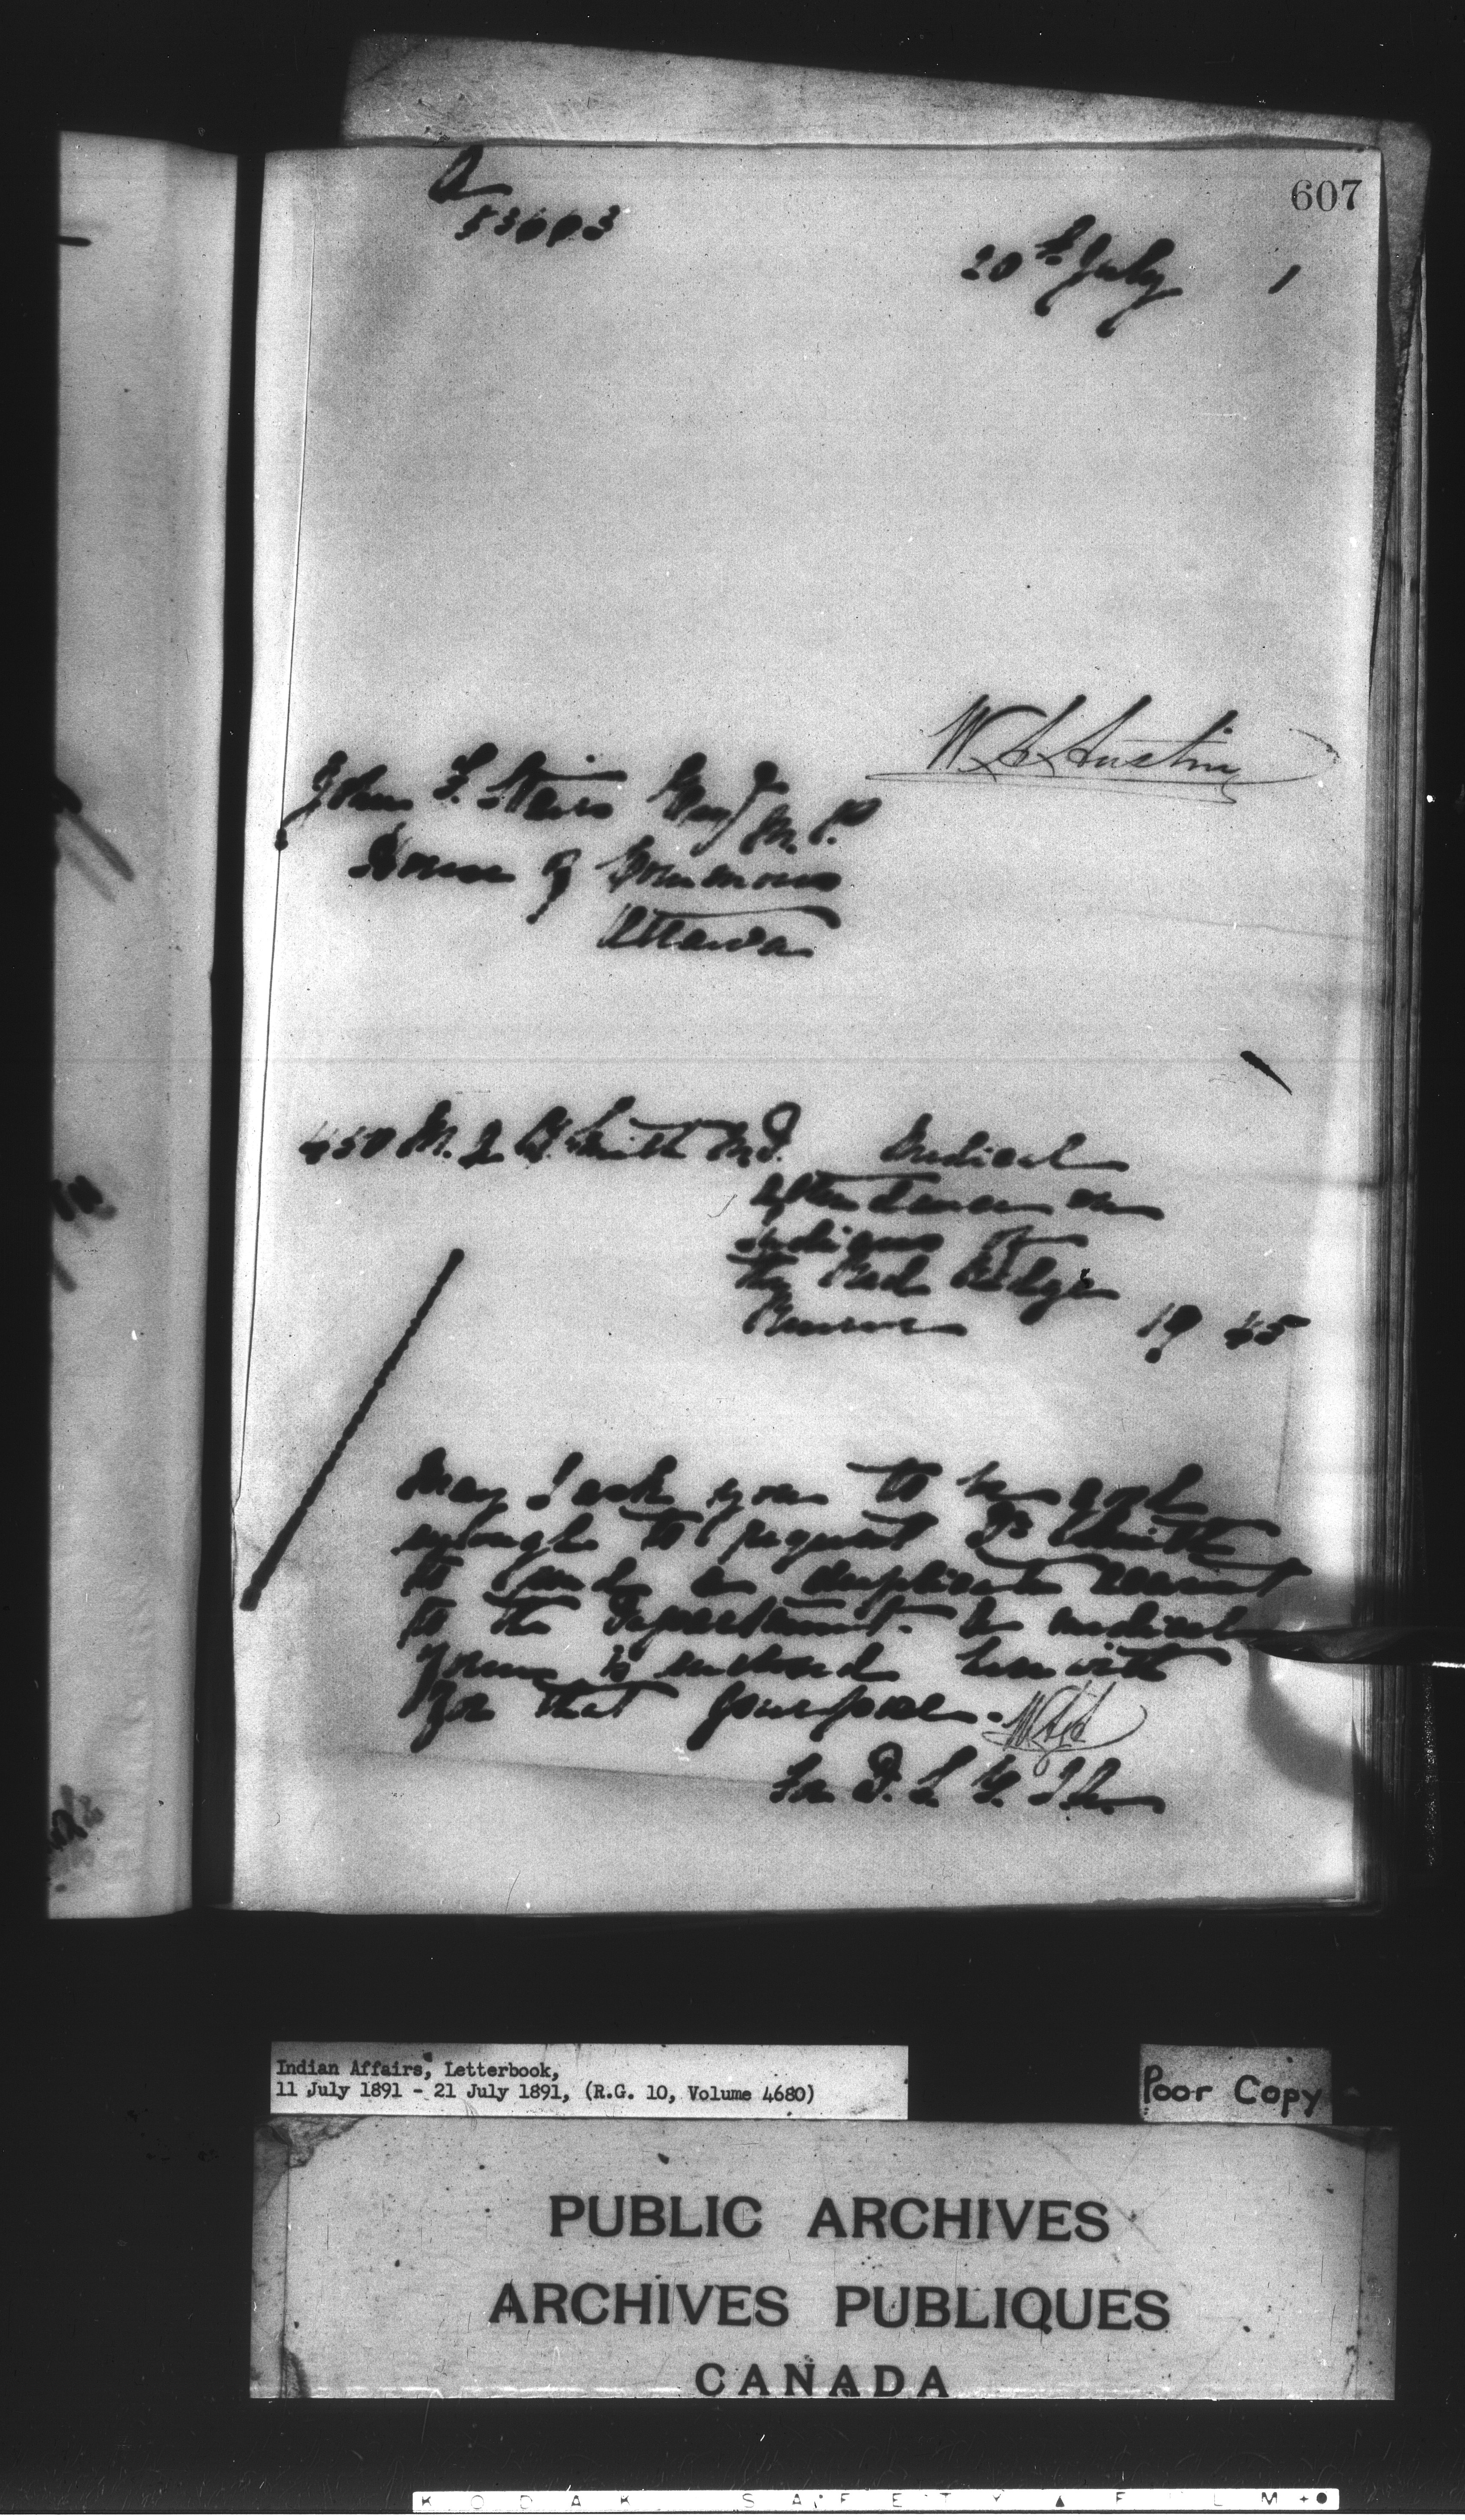 607
20th July 1
W. A. Austin
John F. Stairs Esq M.P.
House of Commons
Ottawa
450 M. A. B. Smith M.D. Medical
attendance on
Indians of
the
Reserve 19 45
May I ask you to be good
enough to request Dr Smith
to send a duplicate account
to the Department. A medical
form is enclosed herewith
for that purpose. W.A.A.
for D. S. G. I. A.
Indian Affairs, Letterbook,
11 July 1891 - 21 July 1891, (R.G. 10, Volume 4680)
Poor Copy
PUBLIC ARCHIVES
ARCHIVES PUBLIQUES
CANADA
KODAK SAFETY FILM